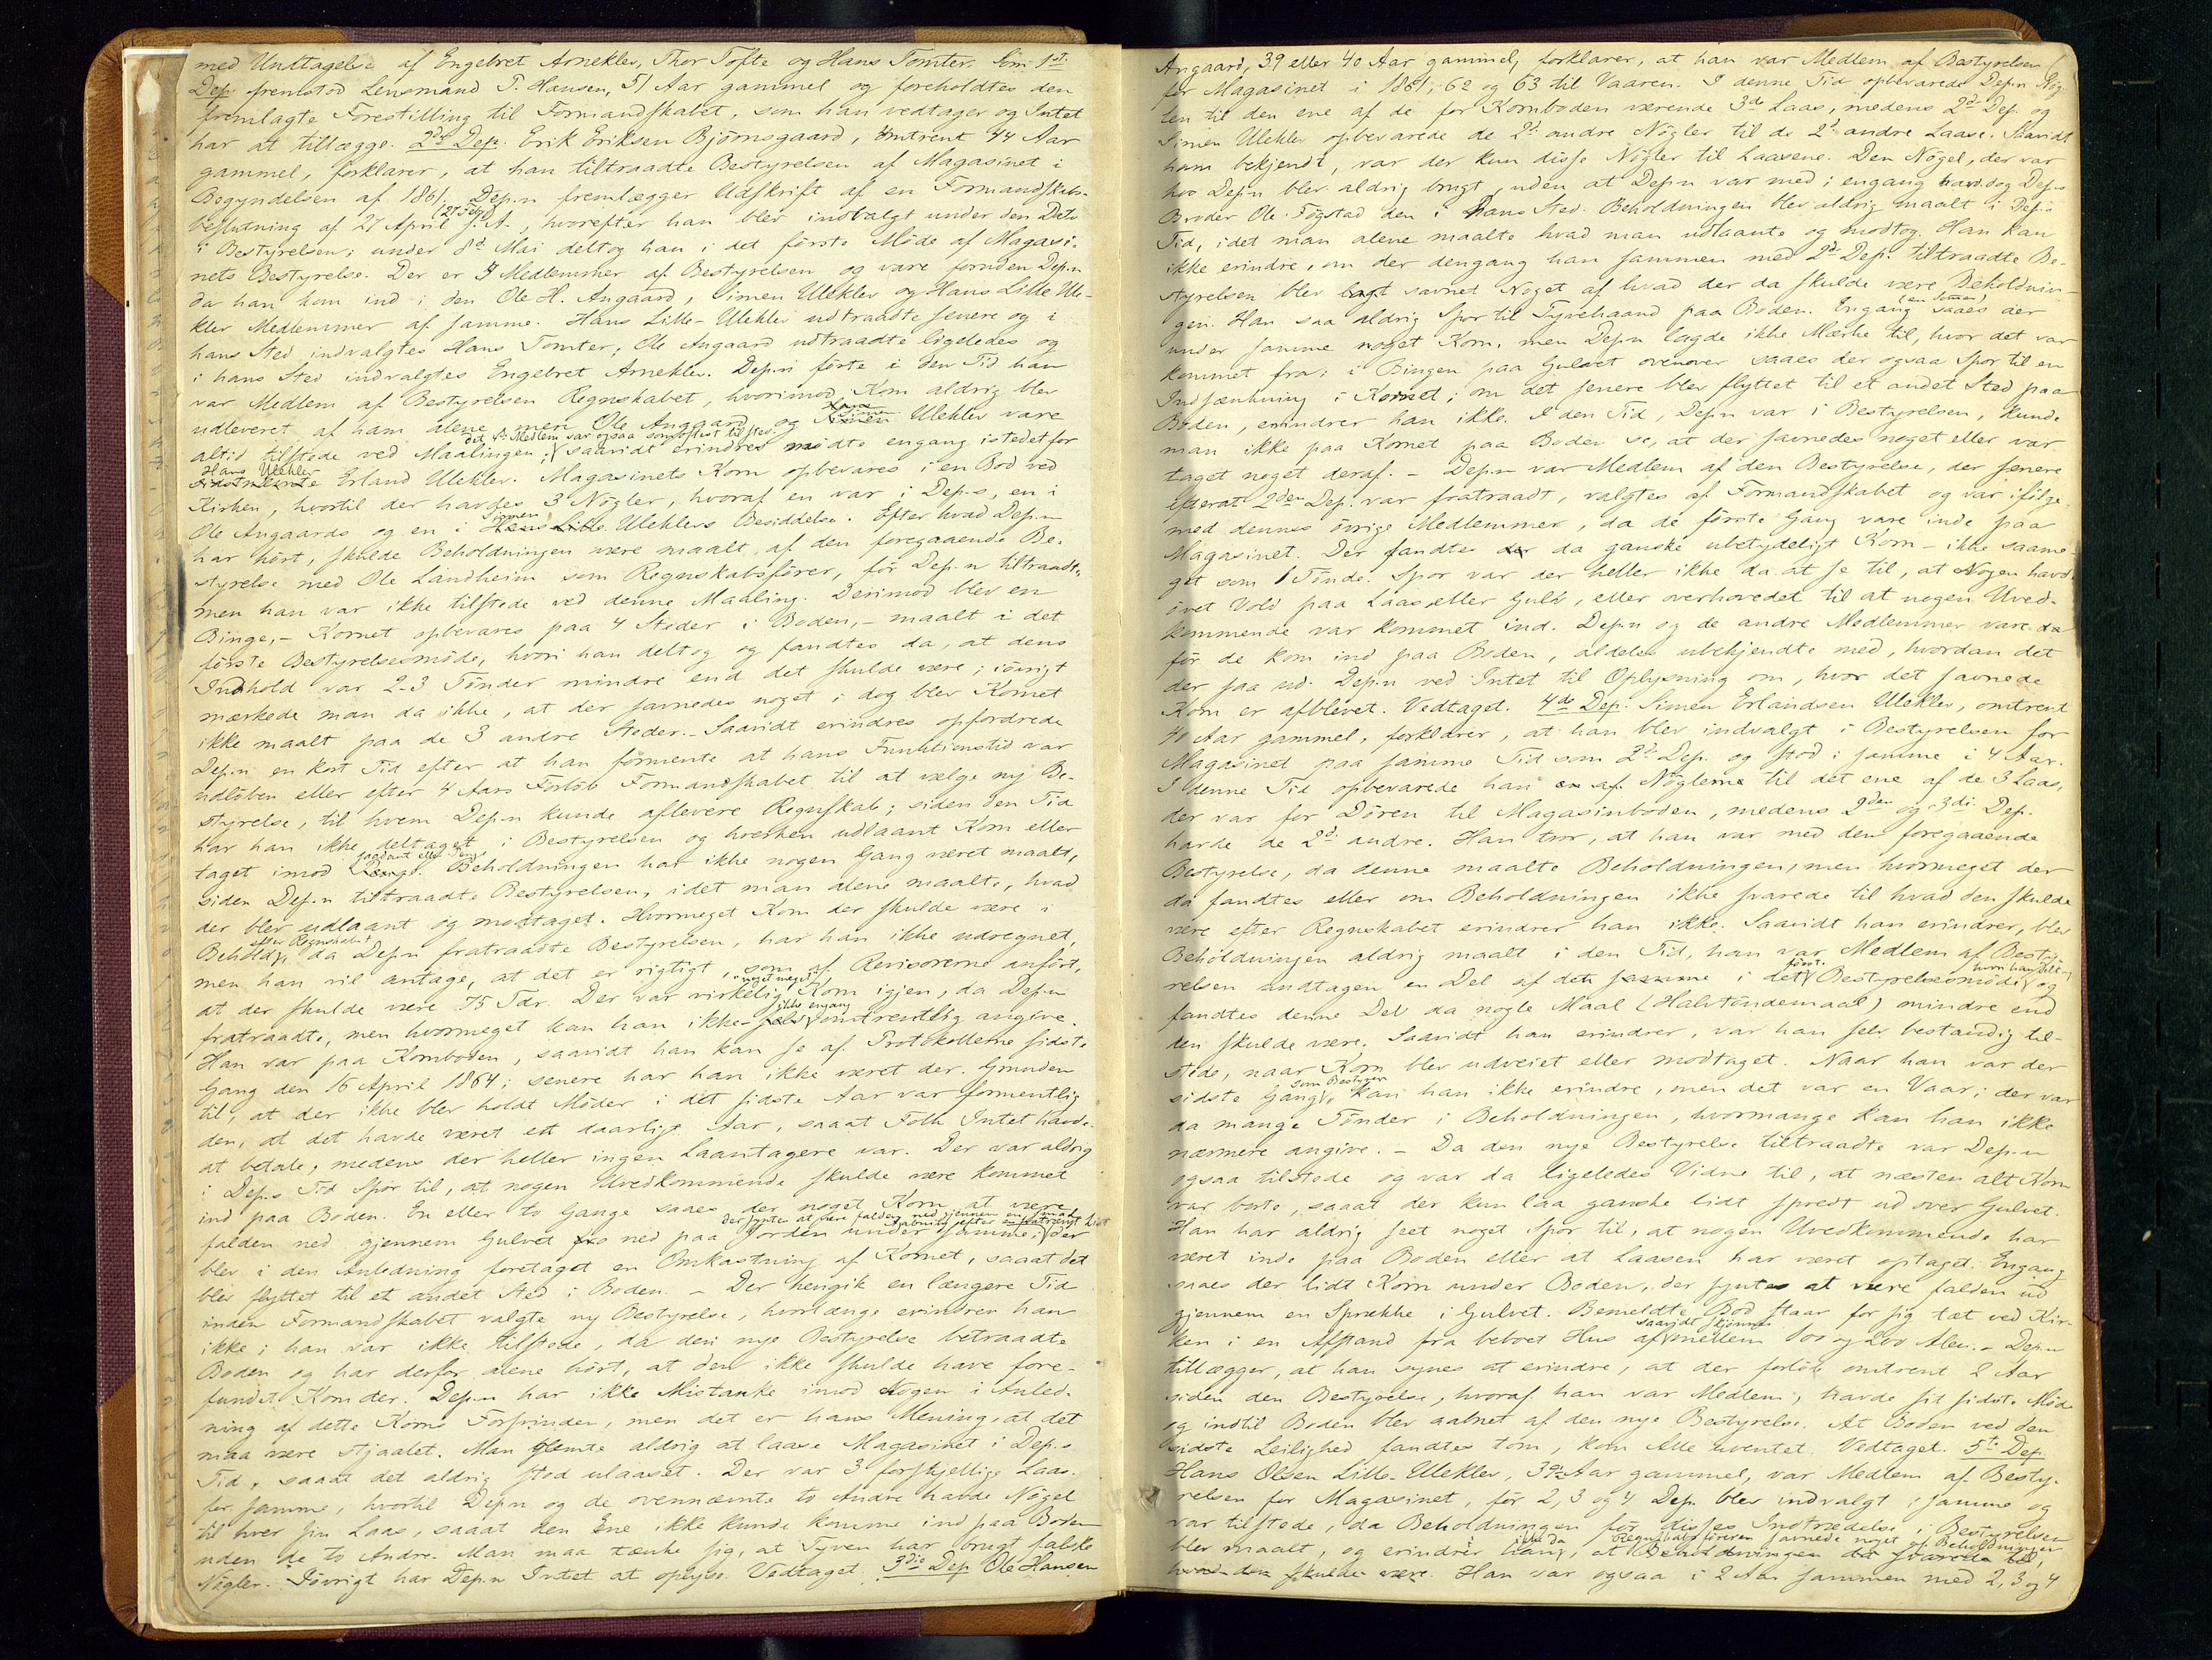 med Undtagelse af Engebret Arneklev, Thor Tofte og Hans Tomter. Som 1ste
Dep. fremstod Lensmand T. Hansen, 51 Aar gammel og foreholdtes den
fremlagte Forestilling til Formandskabet, som han vedtager og Intet
har at tillægge. 2det Dep. Erik Eriksen Björnsgaard, omtrent 44 Aar
gammel, forklarer, at han tiltraadte Bestyrelsen af Magasinet i
Begyndelsen af 1861. Dep.n fremlægger Udskrift af en Formandskabs-
beslutning af 27 April s. A., hvorefter han blev indvalgt under den Dato
i Bestyrelsen; under 8de Mai deltog han i det förste Möde af Magasi-
nets Bestyrelse. Der er 4 Medlemmer af Bestyrelsen og vare foruden Dep.n
da han kom ind i den Ole H. Augaard, Simen Uleklev og Hans Lille Ule-
klev Medlemmer af samme. Hans Lille-Uleklev udtraadte senere og i
hans Sted indvalgtes Hans Tomter; Ole Augaard udtraadte ligeledes og
i hans Sted indvalgtes Engebret Arneklev. Dep.n förte i den Tid han
var Medlem af Bestyrelsen Regnskabet, hvorimod Korn aldrig blev
udleveret af ham alene, men Ole Augaard og Simen Uleklev vare
det 4de Medlem var ogsaa som oftest tilstede
altid tilstede ved Maalingen; saavidt erindres mödte engang istedetfor
Hans Uleklev
sidstnævnte Erland Uleklev. Magasinets Korn opbevares i en Bod ved
Kirken, hvortil der havdes 3 Nögler, hvoraf en var i Dep.s, en i
Simen
Ole Augaards og en i Hans Lille Uleklevs Besiddelse. Efter hvad Dep.n
har hört, skulde Beholdningen være maalt af den foregaaende Be-
styrelse med Ole Landheim som Regnskabsförer, för Dep.n tiltraadte,
men han var ikke tilstede ved denne Maaling. Derimod blev en
Binge, – Kornet opbevares paa 4 Steder i Boden, – maalt i det
förste Bestyrelsesmöde, hvori han deltog og fandtes da, at dens
Indhold var 2-3 Tönder mindre end det skulde være; iövrigt
mærkede man da ikke, at der savnedes noget; dog blev Kornet
ikke maalt paa de 3 andre Steder. – Saavidt erindres opfordrede
Dep.n en kort Tid efter at han förmente at hans Funktionstid var
udlöben eller efter 4 Aars Forlöb Formandskabet til at vælge ny Be-
styrelse, til hvem Dep.n kunde aflevere Regnskab; siden den Tid
har han ikke deltaget i Bestyrelsen og hverken udlaant Korn eller
taget imod saadant. Beholdningen har ikke nogen Gang været maalt,
siden Dep.n tiltraadte Bestyrelsen, idet man alene maalte, hvad
der blev udlaant og modtaget. Hvormeget Korn der skulde være i
efter Regnskabet
Behold, da Dep.n fratraadte Bestyrelsen, har han ikke udregnet,
men han vil antage, at det er rigtigt, som af Revisorerne anfört,
noget meget
at der skulde være 75 Tdr. Der var virkelig Korn igjen, da Dep.n
ikke engang
fratraadte, men hvormeget kan han ikke omtrentlig angive.
Han var paa Kornboden, saavidt han kan se af Protokollerne sidste
Gang den 16 April 1864; senere har han ikke været der. Grunden
til, at der ikke blev holdt Möder i det sidste Aar var formentlig
den, at det havde været ett daarligt Aar, saaat Folk Intet havde
at betale, medens der heller ingen Laantagere var. Der var aldrig
i Dep.s Tid Spor til, at nogen Uvedkommende skulde være kommet
ind paa Boden. En eller to Gange saaes der noget Korn at være
der syntes at være falden ned gjennem en smal
Aabning efter
falden ned gjennem Gulvet ned paa Jorden under samme; der
blev i den Anledning foretaget en Omkastning af Kornet, saaat det
blev flyttet til et andet Sted i Boden. – Der hengik en længere Tid
inden Formandskabet valgte ny Bestyrelse, hvorlænge erindrer han
ikke; han var ikke tilstede, da den nye Bestyrelse betraadte
Boden og har derfor alene hört, at den ikke skulde have fore-
fundet Korn der. Dep.n har ikke Mistanke imod Nogen i Anled-
ning af dette Korns Forsvinden, men det er hans Mening, at det
maa være stjaalet. Man glemte aldrig at laase Magasinet i Dep.s
Tid, saaat det aldrig stod ulaaset. Der var 3 forskjellige Laas
for samme, hvortil Dep.n og de ovennævnte to Andre havde Nögel
til hver sin Laas, saaat den Ene ikke kunde komme ind paa Boden
uden de to Andre. Man maa tænke sig, at Tyven har brugt falske
Nögler. Iövrigt har Dep.n Intet at oplyse. Vedtaget. 3die Dep. Ole Hansen
Augaard, 39 eller 40 Aar gammel, forklarer, at han var Medlem af Bestyrelsen
for Magasinet i 1861, 62 og 63 til Vaaren. I denne Tid opbevarede Dep.n Nög-
len til den ene af de for Kornboden værende 3de Laas, medens 2det Dep. og
Simen Uleklev opbevarede de 2de andre Nögler til de 2de andre Laase. Saavidt
ham bekjendt, var der kun disse Nögler til Laasene. Den Nögel, der var
hos Dep.n blev aldrig brugt, uden at Dep.n var med; engang havde dog Dep.s
Broder Ole Fögstad den i Hans Sted. Beholdningen blev aldrig maalt i Dep.s
Tid, idet man alene maalte hvad man udlaante og modtog. Han kan
ikke erindre, om der dengang han sammen med 2det Dep. tiltraadte Be-
styrelsen blev savnet Noget af hvad der da skulde være Beholdnin-
(en Sommer)
gen. Han saa aldrig Spor til Tyvehaand paa Boden. Engang saaes der
under samme noget Korn, men Dep.n lagde ikke Mærke til, hvor det var
kommet fra; i Bingen paa Gulvet ovenover saaes der ogsaa Spor til en
Indsænkning i Kornet; om det senere blev flyttet til et andet Sted paa
Boden, erindrer han ikke. I den Tid, Dep.n var i Bestyrelsen, kunde
man ikke paa Kornet paa Boden se, at der savnedes noget eller var
taget noget deraf. – Dep.n var Medlem af den Bestyrelse, der senere
efterat 2den Dep. var fratraadt, valgtes af Formandskabet og var ifölge
med dennes övrige Medlemmer, da de förste Gang vare inde paa
Magasinet. Der fandtes da ganske ubetydeligt Korn – ikke saame-
get som 1 Tönde. Spor var der heller ikke da at se til, at Nogen havde
övet Vold paa Laas eller Gulv, eller overhovedet til at nogen Uved-
kommende var kommet ind. Dep.n og de andre Medlemmer vare
för de kom ind paa Boden, aldeles ubekjendte med, hvordan det
der saa ud. Dep.n ved Intet til Oplysning om, hvor det savnede
Korn er afblevet. Vedtaget. 4de Dep. Simen Erlandsen Uleklev, omtrent
40 Aar gammel, forklarer, at han blev indvalgt i Bestyrelsen for
Magasinet paa samme Tid som 2det Dep. og stod i samme i 4 Aar.
I denne Tid opbevarede han en af Nöglerne til det ene af de 3 Laas,
der var for Dören til Magasinboden, medens 2den og 3die Dep.
havde de 2de andre. Han tror, at han var med den foregaaende
Bestyrelse, da denne maalte Beholdningen, men hvormeget der
da fandtes eller om Beholdningen ikke svarede til hvad den skulde
være efter Regnskabet erindrer han ikke. Saavidt han erindrer, blev
Beholdningen aldrig maalt i den Tid, han var Medlem af Besty-
först. hvori han deltog
relsen undtagen en Del af den i det Bestyrelsesmöde og
fandtes denne Del da nogle Maal (Halvtöndemaal) mindre end
den skulde være. Saavidt han erindrer, var han selv bestandig til-
stede, naar Korn blev udveiet eller modtaget. Naar han var der
som Bestyrer
sidste Gang, kan han ikke erindre, men det var en Vaar; der var
da mange Tönder i Beholdningen, hvormange kan han ikke
nærmere angive. – Da den nye Bestyrelse tiltraadte var Dep.n
ogsaa tilstede og var da ligeledes Vidne til, at næsten alt Korn
var borte, saaat der kun laa ganske lidt spredt ud over Gulvet.
Han har aldrig seet noget Spor til, at nogen Uvedkommende har
været inde paa Boden eller at Laasen har været optaget. Engang
saaes der lidt Korn under Boden, der syntes at være falden ud
gjennem en Sprække i Gulvet. Bemeldte Bod staar for sig tæt ved Kir-
saavidt skjönnes
ken i en Afstand fra beboet Hus af mellem 100 og 200 Alen. – Dep.n
tillægger, at han synes at erindre, at der forlöb omtrent 2 Aar
siden den Bestyrelse, hvoraf han var Medlem, havde sit sidste Möde
og indtil Boden blev aabnet af den nye Bestyrelse. At Boden ved den
sidste Leilighed fandtes tom, kom Alle uventet. Vedtaget. 5te Dep.
Hans Olsen Lille-Uleklev, 39 Aar gammel, var Medlem af Besty-
relsen for Magasinet, för 2, 3 og 4 Dep. blev indvalgt i samme og
var tilstede, da Beholdningen för disses Indtrædelse i Bestyrelsen
ikke da Regnskabsföreren savnede noget af Beholdningen
blev maalt, og erindrer han, at Beholdningen svarede til,
hvad den skulde være. Han var ogsaa i 2 Aar sammen med 2, 3 og 4